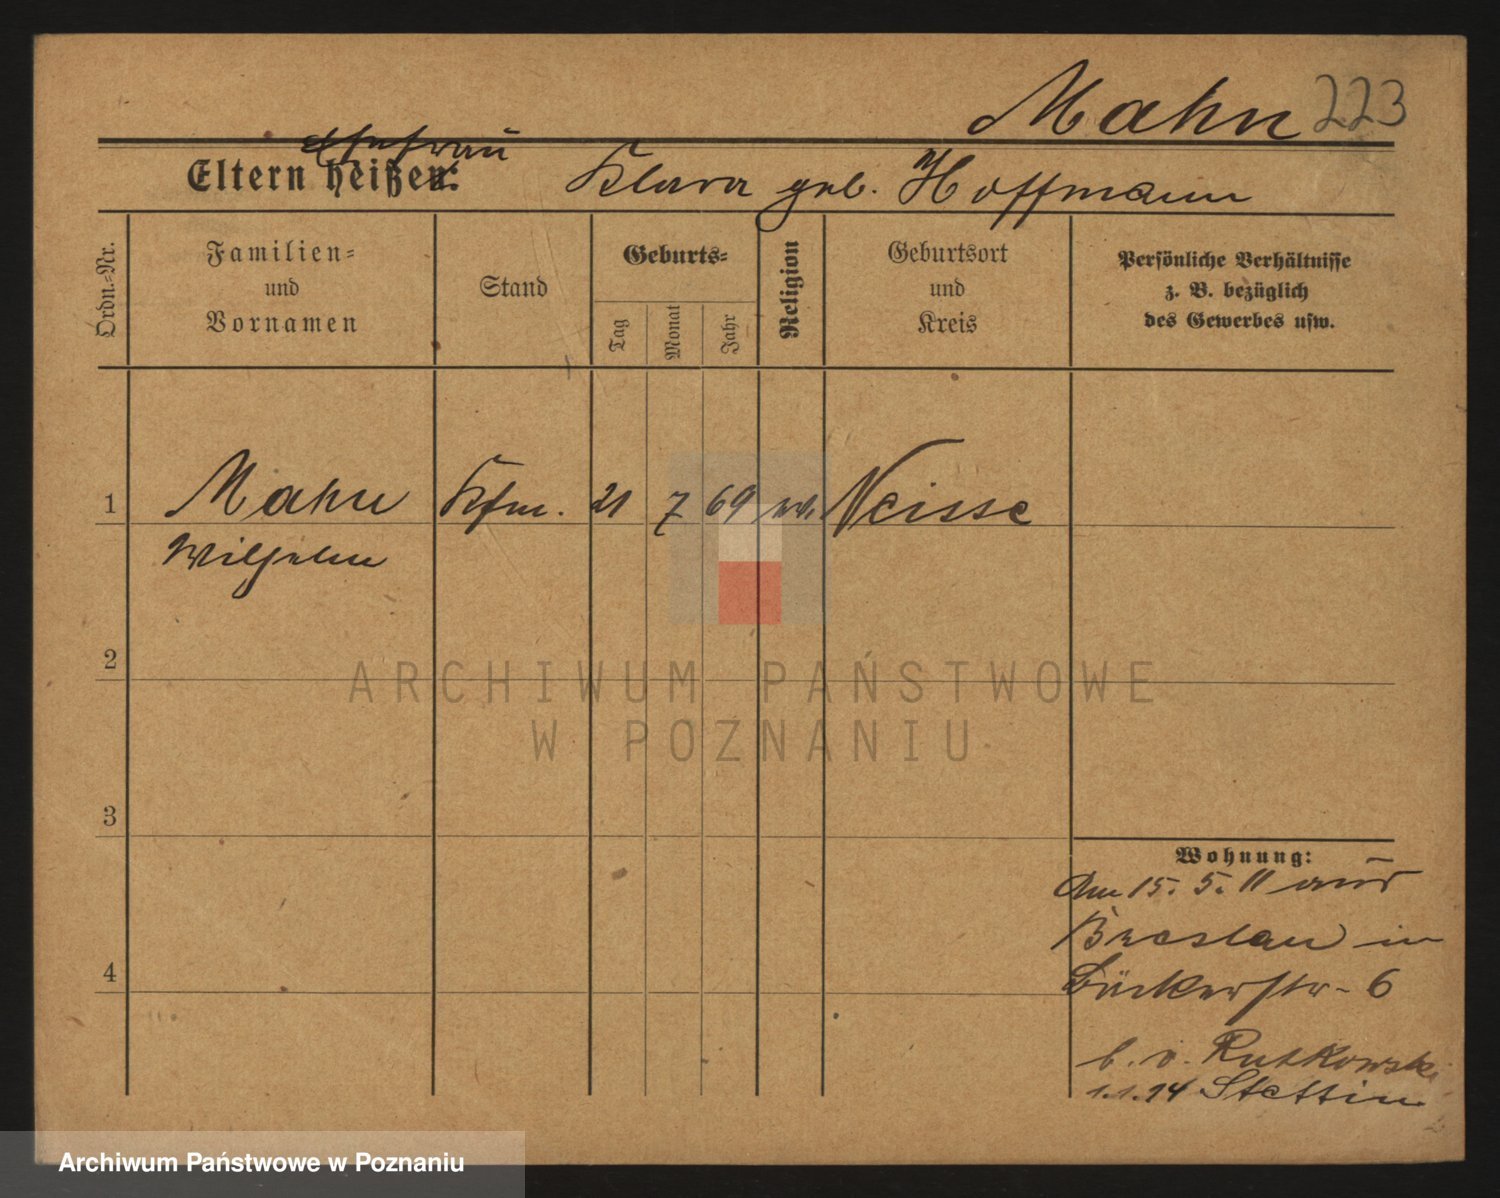 Mahn 223
Ehefrau
Eltern heißen: Klara geb. Hoffmann
Ordn.-Nr.
Familien-
und
Vornamen
Stand
Geburts-
Tag
Monat
Jahr
Religion
Geburtsort
und
Kreis
Persönliche Verhältnisse
z. B. bezüglich
des Gewerbes usw.
1 Mahn Kfm. 21 7 69 Neisse
Wilhelm
2
ARCHIWUM PAŃSTWOWE
W POZNANIU
3
Wohnung:
Am 15. 5. 11 aus
Breslau in
4
Bäckerstr. 6
b. v. Rutkowski
1.1.14 Stettin
Archiwum Państwowe w Poznaniu